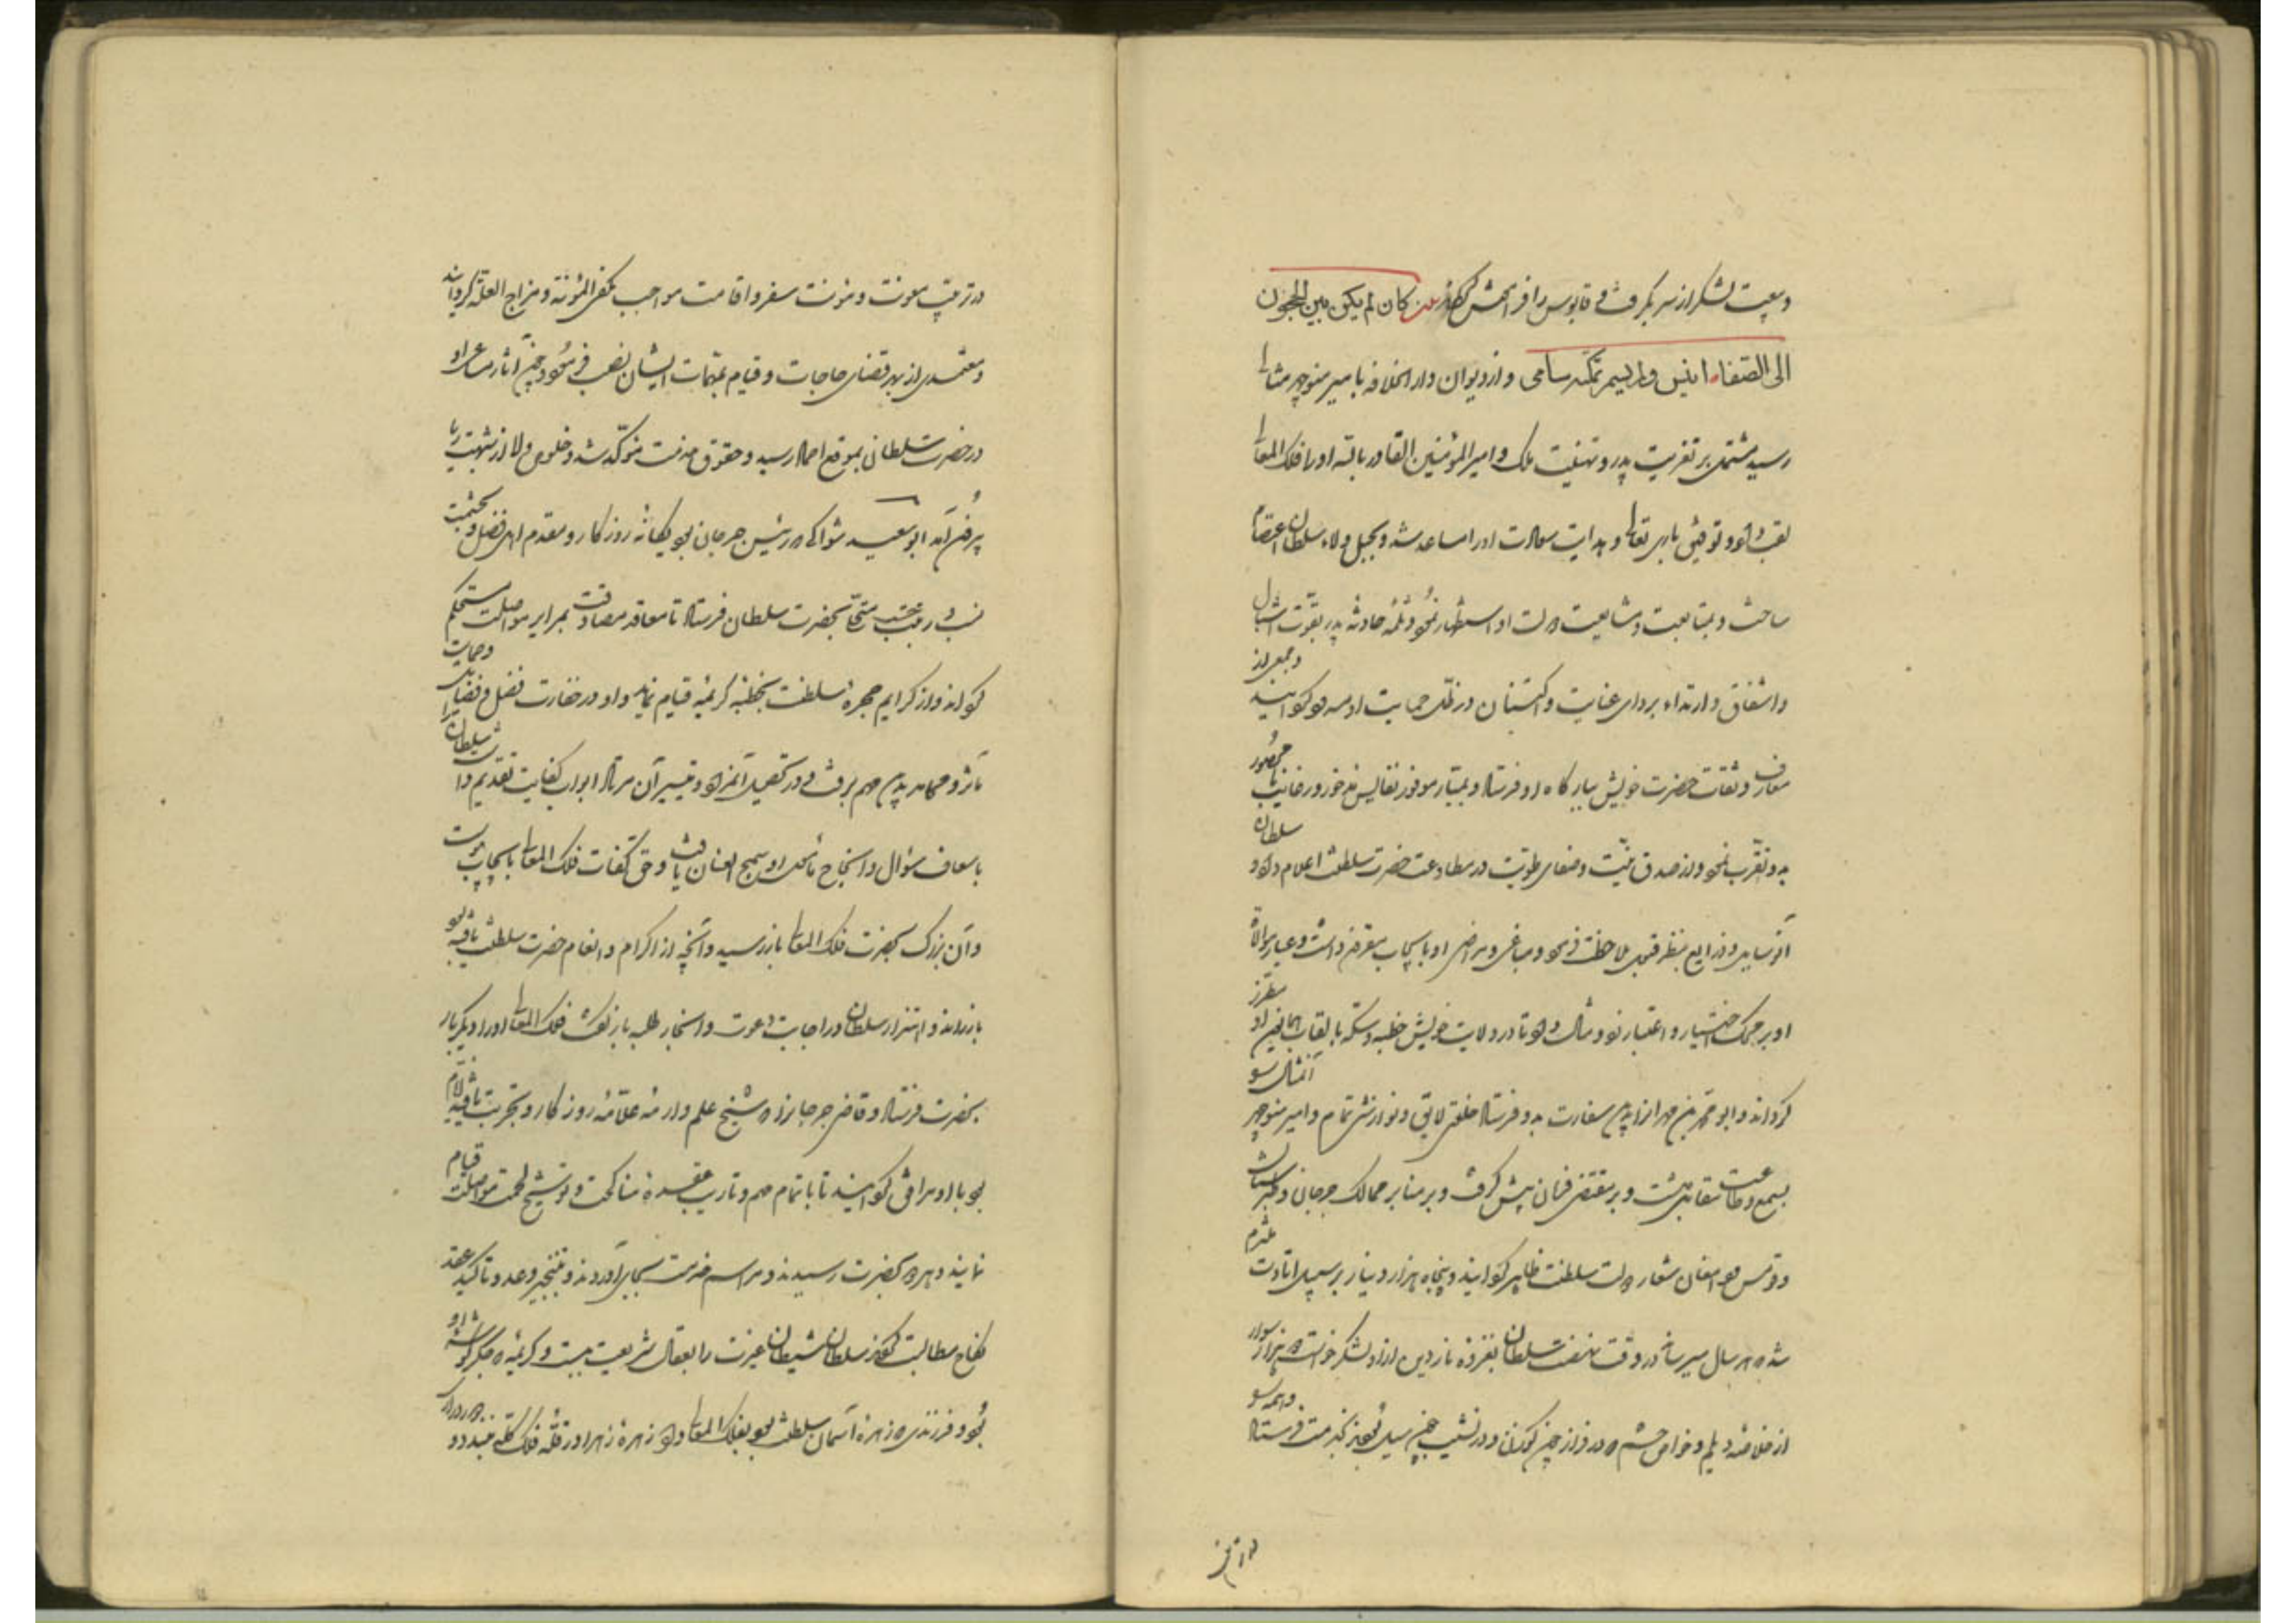 و بیعت لشکر از سر گرفت و قابوس را فراموش کردند شعر کان لم یکن بین الحجون
الی الصفا انیس ولم یسمر بمکة سامر و از دیوان دار الخلافه بامیر منوچهر مثالی
رسید مشتمل بر تعزیت پدر و تهنیت ملک و امیر المؤمنین القادر بالله او را فلک المعالی
لقب داد و توفیق باری تعالی و هدایت سعادت او را مساعد شد و بحبل ولاء سلطان اعتصام
ساخت و بمتابعت و مشایعت دولت او استظهار نمود و ثلمه حادثه پدر بقوت اشبال
و اشفاق و ارتداء بردای عنایت و اکتنان در ظل حمایت او مسدود گردانید و جمعی از
معارف و ثقات حضرت خویش ببارگاه او فرستاد و بمبار موفور و نفایس مذخور و رغایب نامحصور
بدو تقرب نمود و از صدق نیت و صفای طویت در مطاوعت حضرت سلطنت اعلام داد و سلطان
آن وسایل و ذرایع بنظر قبول ملاحظت فرمود و مباغی و مراضی او بایجاب مقرون داشت و عیار موالاة
او بر محک اختبار و اعتبار زد و مثال داد تا در ولایت خویش خطبه و سکه بالقاب همایون او مطرز
گرداند و ابو محمد بن مهران را بدین سفارت بدو فرستاد با خلعتی لایق و نوازشی تمام و امیر منوچهر آن مثال را
بسمع و طاعت مقابل داشت و بر مقتضی فرمان پیش گرفت و بر منابر ممالک جرجان و طبرستان
و قومس و دامغان شعار دولت سلطنت ظاهر گردانید و پنجاه هزار دینار بر سبیل اتاوت ملتزم
شد که هر سال میرساند و در وقت نهضت سلطان بغزوه ناردین از او لشکر خواست دو هزار سوار
از خلاصه دیلم و خواص حشم که در فراز چون گوزن و در نشیب چون سیل بودند بخدمت فرستاد و همه را
در ترتیب معونت و مؤنت سفر و اقامت مواجب مکفی المؤنة و مزاح العلة گردانید
و معتمدی از بهر قضای حاجات و قیام بمهمات ایشان نصب فرمود و چون آثار مساعی او
در حضرت سلطانی بموقع احماد رسید و حقوق خدمت مؤکد شد و خلوص ولا از شبهت ریا
بیرون آمد ابو سعید شوالکی که رئیس جرجان بود و یگانه روزگار و مقدم اهل فضل و حشمت
نسب و رتبت حسب متحلی بحضرت سلطان فرستاد تا معاقد مصادقت بمرایر مواصلت مستحکم
گرداند و از کرایم حجره سلطنت بخطبه کریمه قیام نماید و او در خفارت فضل و فضایل و حمایت
مآثر و محامد بدین مهم برفت و در تحصیل آن مراد و تیسیر آن مراد ابواب کفایت تقدیم داشت سلطان را
باسعاف سؤال و انجاح مأمول او سمح العنان یافت و حق کفات فلک المعالی بایجاب پیوست
و آن بزرگ بحضرت فلک المعالی باز رسید و آنچه از اکرام و انعام حضرت سلطنت یافته بود
باز راند و اهتزاز سلطان در اجابت دعوت و انجاز طلبه باز گفت فلک المعالی او را دیگر بار
بحضرت فرستاد و قاضی جرجان را که شیخ علم و علامه روزگار و تجربت یافته ایام
بود با او مرافق گردانید تا باتمام مهم و تاریب عقده مناکحت و توشیح لحمت مواصلت قیام
نمایند و هر دو بحضرت رسیدند و مراسم خدمت بجای آوردند و بتنجیز وعد و تاکید عقد
نکاح مطالبت کردند سلطان شیطان غیرت را بعقال شریعت ببست و کریمه که جگر گوشه او
بود و فرزندی که زهره آسمان سلطنت بود بفلک المعالی داد زهره زهرا در قله فلک کله بندد و
در آن